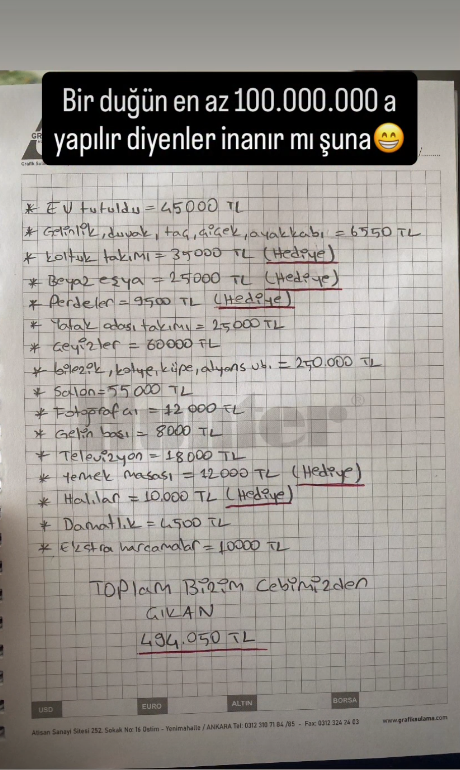 Bir duğün en az 100.000.000 a
yapılır diyenler inanır mı şuna😁
* EV tutuldu = 45000 TL
* Gelinlik, duvak, taç, çiçek, ayakkabı = 6550 TL
* Koltuk takımı = 35000 TL (Hediye)
* Beyaz eşya = 25000 TL (Hediye)
* Perdeler = 9500 TL (Hediye)
* Yatak odası takımı = 25000 TL
* Çeyizler = 60000 TL
* Bilezik, kolye, küpe, alyans vb. = 250.000 TL
* Salon = 55000 TL
* Fotoğrafçı = 12000 TL
* Gelin başı = 8000 TL
* Televizyon = 18000 TL
* Yemek masası = 12000 TL (Hediye)
* Halılar = 10.000 TL (Hediye)
* Damatlık = 4500 TL
* Ekstra harcamalar = 10000 TL
TOPlam Bizim Cebimizden
ÇIKAN
494.050 TL
USD EURO ALTIN BORSA
Alisan Sanayi Sitesi 252. Sokak No: 16 Ostim - Yenimahalle / ANKARA Tel: 0312 310 71 84 /85 - Fax: 0312 324 24 03